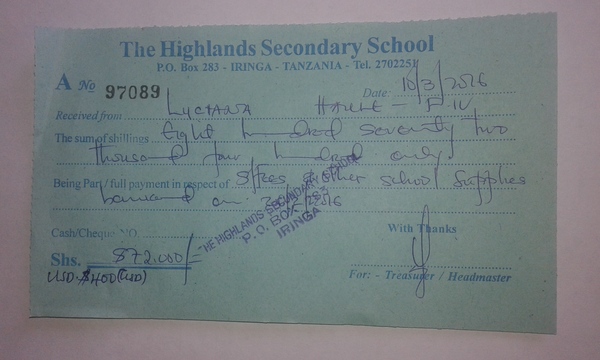 The Highlands Secondary School
P.O. Box 283 - IRINGA - TANZANIA - Tel. 2702251
A No 97089
Date: 10/3/2016
Received from LUCIANA HAULE - F.IV
The sum of shillings Eight hundred seventy two
thousand four hundred only
Being Part / full payment in respect of S/fees & other school supplies
on
THE HIGHLANDS SECONDARY
P.O. BOX 283
IRINGA
Cash/Cheque NO.
With Thanks
Shs. 872.000/=
USD. $400 (USD)
For: - Treasurer / Headmaster